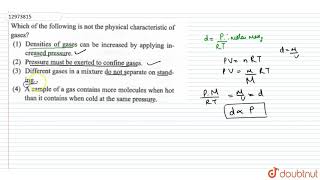 12973815
Which of the following is not the physical characteristic of
gases?
(1) Densities of gases can be increased by applying in-
creased pressure.
(2) Pressure must be exerted to confine gases.
(3) Different gases in a mixture do not separate on stand-
ing.
(4) A sample of a gas contains more molecules when hot
than it contains when cold at the same pressure.
d = P · molar mass
RT
d = μ
v
PV = nRT
PV = μ RT
M
P.M = μ = d
RT v
d ∝ P
doubtnut